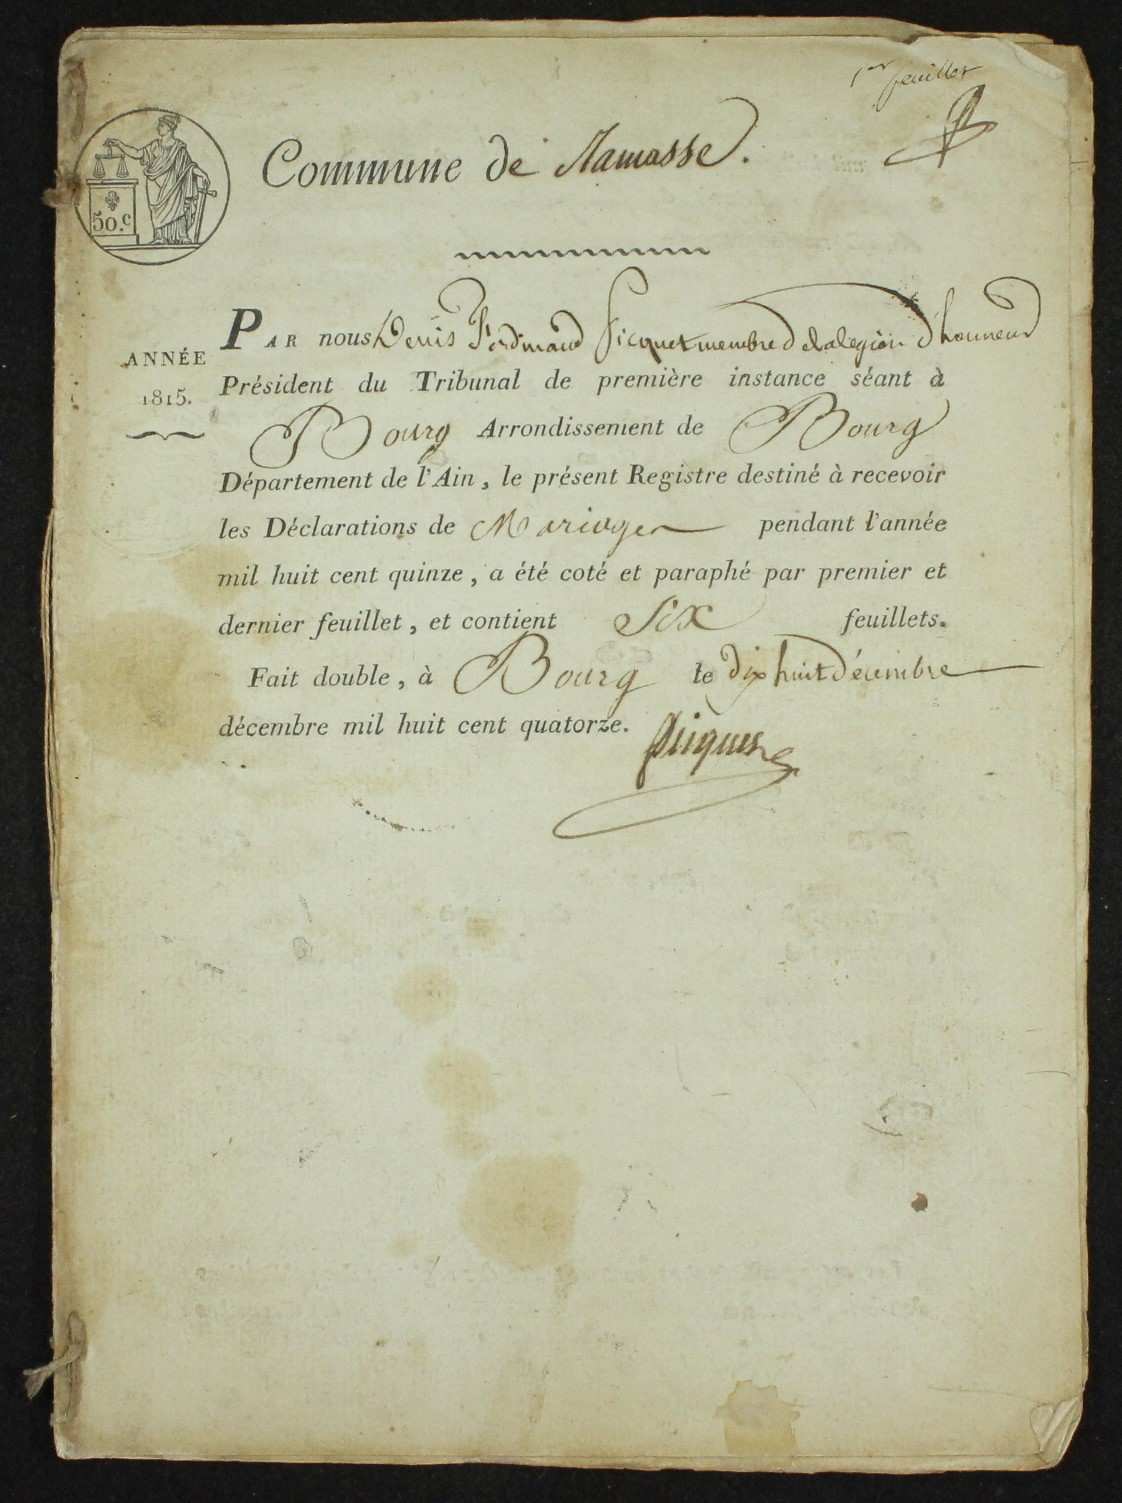 1er feuillet
Commune de Ramasse.
50.c
PAR nous Denis Ferdinand Picquet membre de la legion d'honneur
ANNÉE
1815.
Président du Tribunal de première instance séant à
Bourg Arrondissement de Bourg
Département de l'Ain, le présent Registre destiné à recevoir
les Déclarations de Mariages pendant l'année
mil huit cent quinze, a été coté et paraphé par premier et
dernier feuillet, et contient Six feuillets.
Fait double, à Bourg le dix huit décembre
décembre mil huit cent quatorze.
Picquet